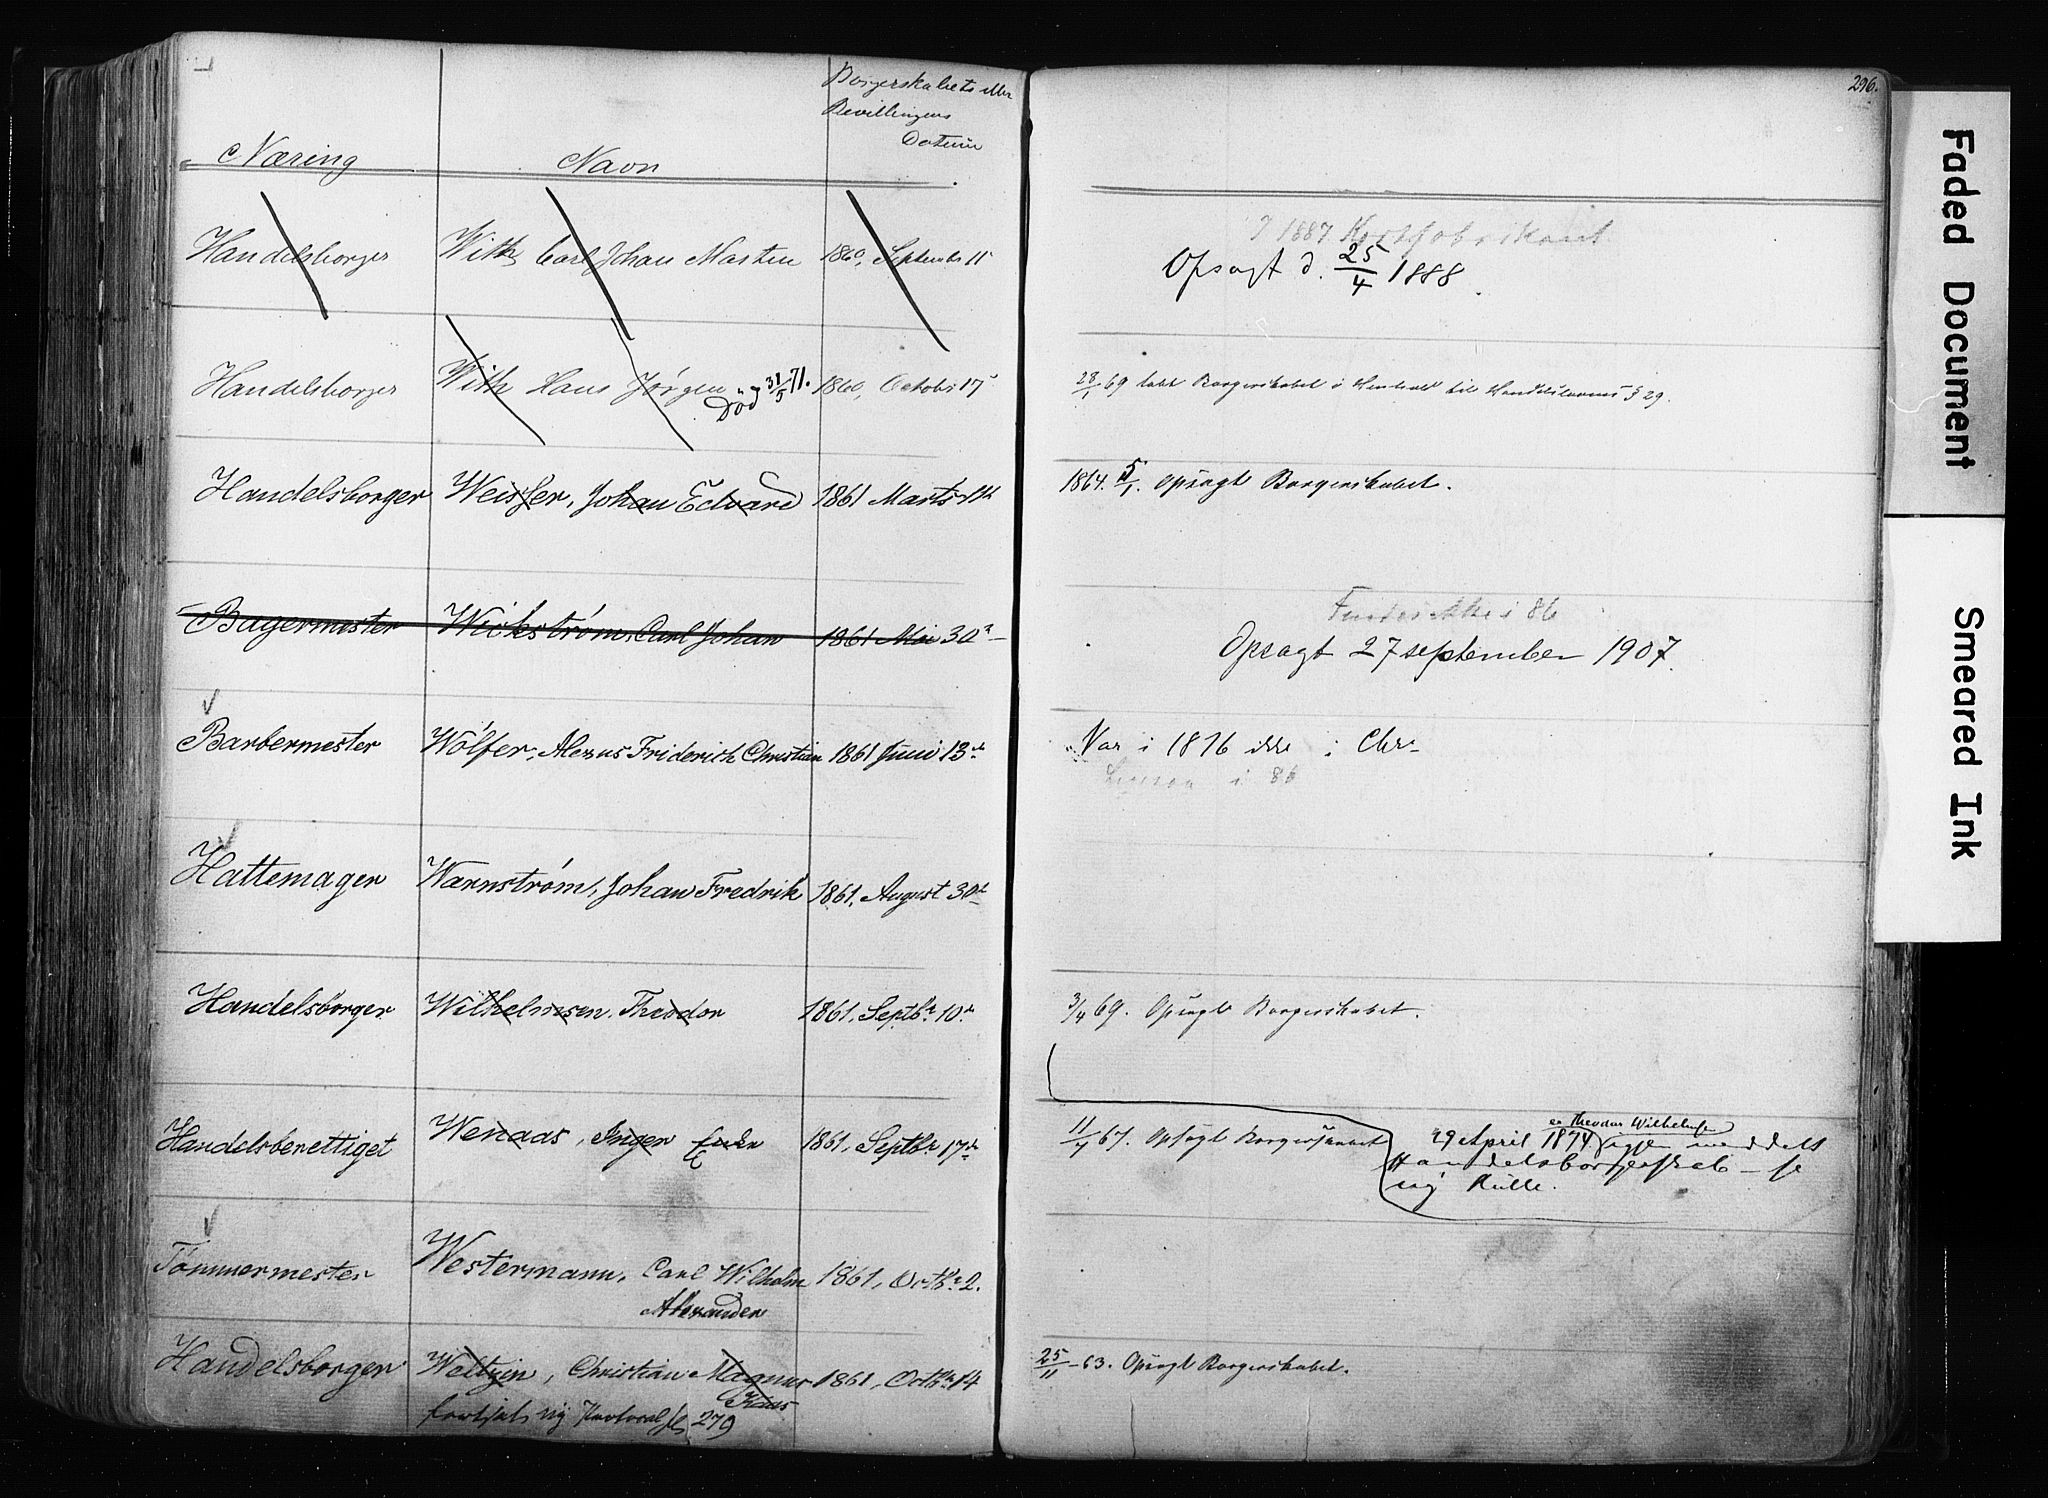 296.
Næring Navn Borgerskabets eller
Bevillingens
Datum
Handelsborger With, Carl Johan Martin 1860, Septembr 11
I 1887 Kortfabrikant
Opsagt d. 25/4 1888.
Handelsborger With Hans Jørgen Död 31/5 71. 1860, Octobr 17
28/1 69 tabt Borgerskabet i Henhold til Handelslovens § 29.
Handelsborger Weisser, Johan Edvard 1861 Marts
1864. 5/1. Opsagt Borgerskabet.
Bagermester Wickstrøm, Carl Johan 1861 Mai 30
i 86
Opsagt 27 september 1907.
Barbermester Wölfer, Alexus Friderich Christian 1861 Juni 13
Var i 1876 ikke i Chr
i 86
Hattemager Warnstrøm, Johan Fredrik 1861, August 30
Handelsborger Wilhelmsen, Theodor 1861, Septbr 10
3/4 69. Opsagt Borgerskabet.
Handelsberettiget Wenaas, Inger 1861, Septbr 17
11/4 67. Opsagt Borgerskabet
er Theodor Wilhelmsen
29 April 1874 igjen meddelt
Handelsborgerskab – se
ny Rulle.
Tømmermester Westermann, Carl Wilhelm 1861, Octbr 2.
Alexander
Handelsborger Weltzin, Christian Magnus 1861, Octbr 14
Kaas
25/11 – 63. Opsagt Borgerskabet.
fortsat ny Protocol fol 279
Faded Document
Smeared Ink